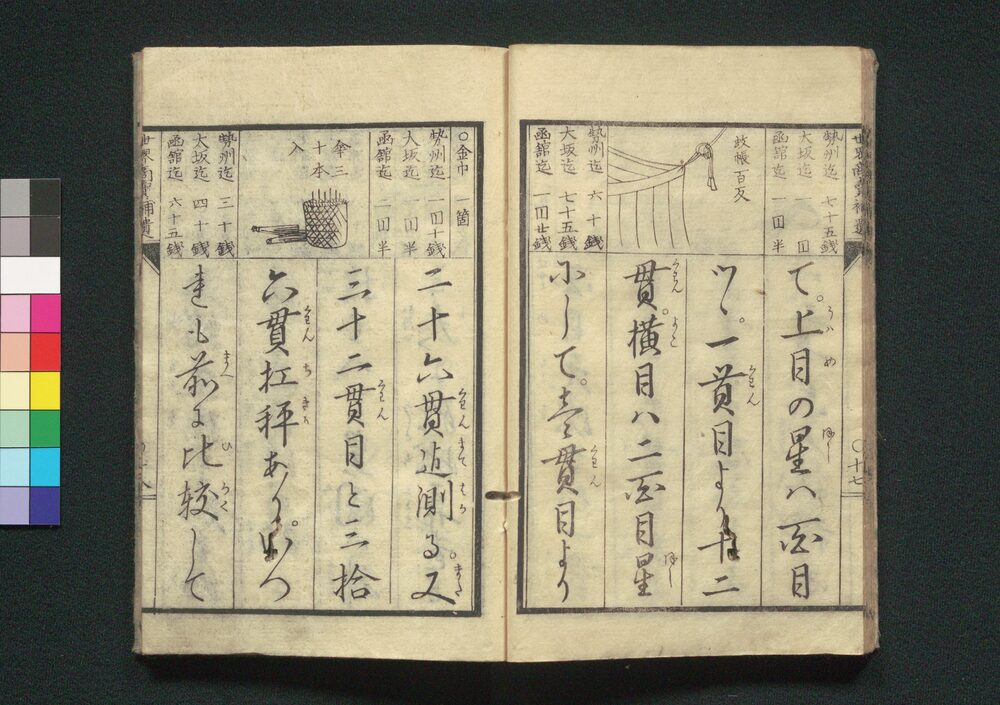 勢州迄 七十五銭
大坂迄 一円
函館迄 一円半
蚊帳百反
勢州迄 六十銭
大坂迄 七十五銭
函館迄 一円廿銭
て。上目の星ハ百目
ツヽ。一貫目より十二
貫。横目ハ二百目星
にして。壱貫目より
十七
○金巾 一箇
勢州迄 一円十銭
大坂迄 一円半
函館迄 二円半
傘三
十本
入
勢州迄 三十銭
大坂迄 四十銭
函館迄 六十五銭
二十六貫迄測る。又
三十二貫目と三拾
六貫扛秤あり。いつ
れも前に比較して
世界商売補遺